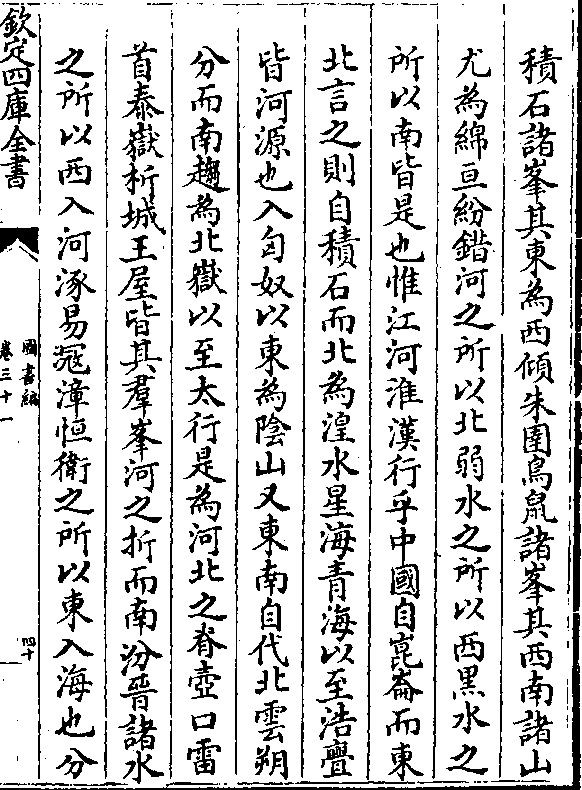 積石諸峯其東為西傾朱圉鳥鼠諸峯其西南諸山
尤為綿亘紛錯河之所以北弱水之所以西黑水之
所以南皆是也惟江河淮漢行乎中國自崑崙而東
北言之則自積石而北為湟水星海青海以至浩亹
皆河源也入匈奴以東為陰山又東南自代北雲朔
分而南趨為北嶽以至太行是為河北之脊壺口雷
首泰嶽析城王屋皆其羣峯河之折而南汾晉諸水
之所以西入河涿易滱漳恒衛之所以東入海也分
欽定四庫全書
圖書編
卷三十一
四十